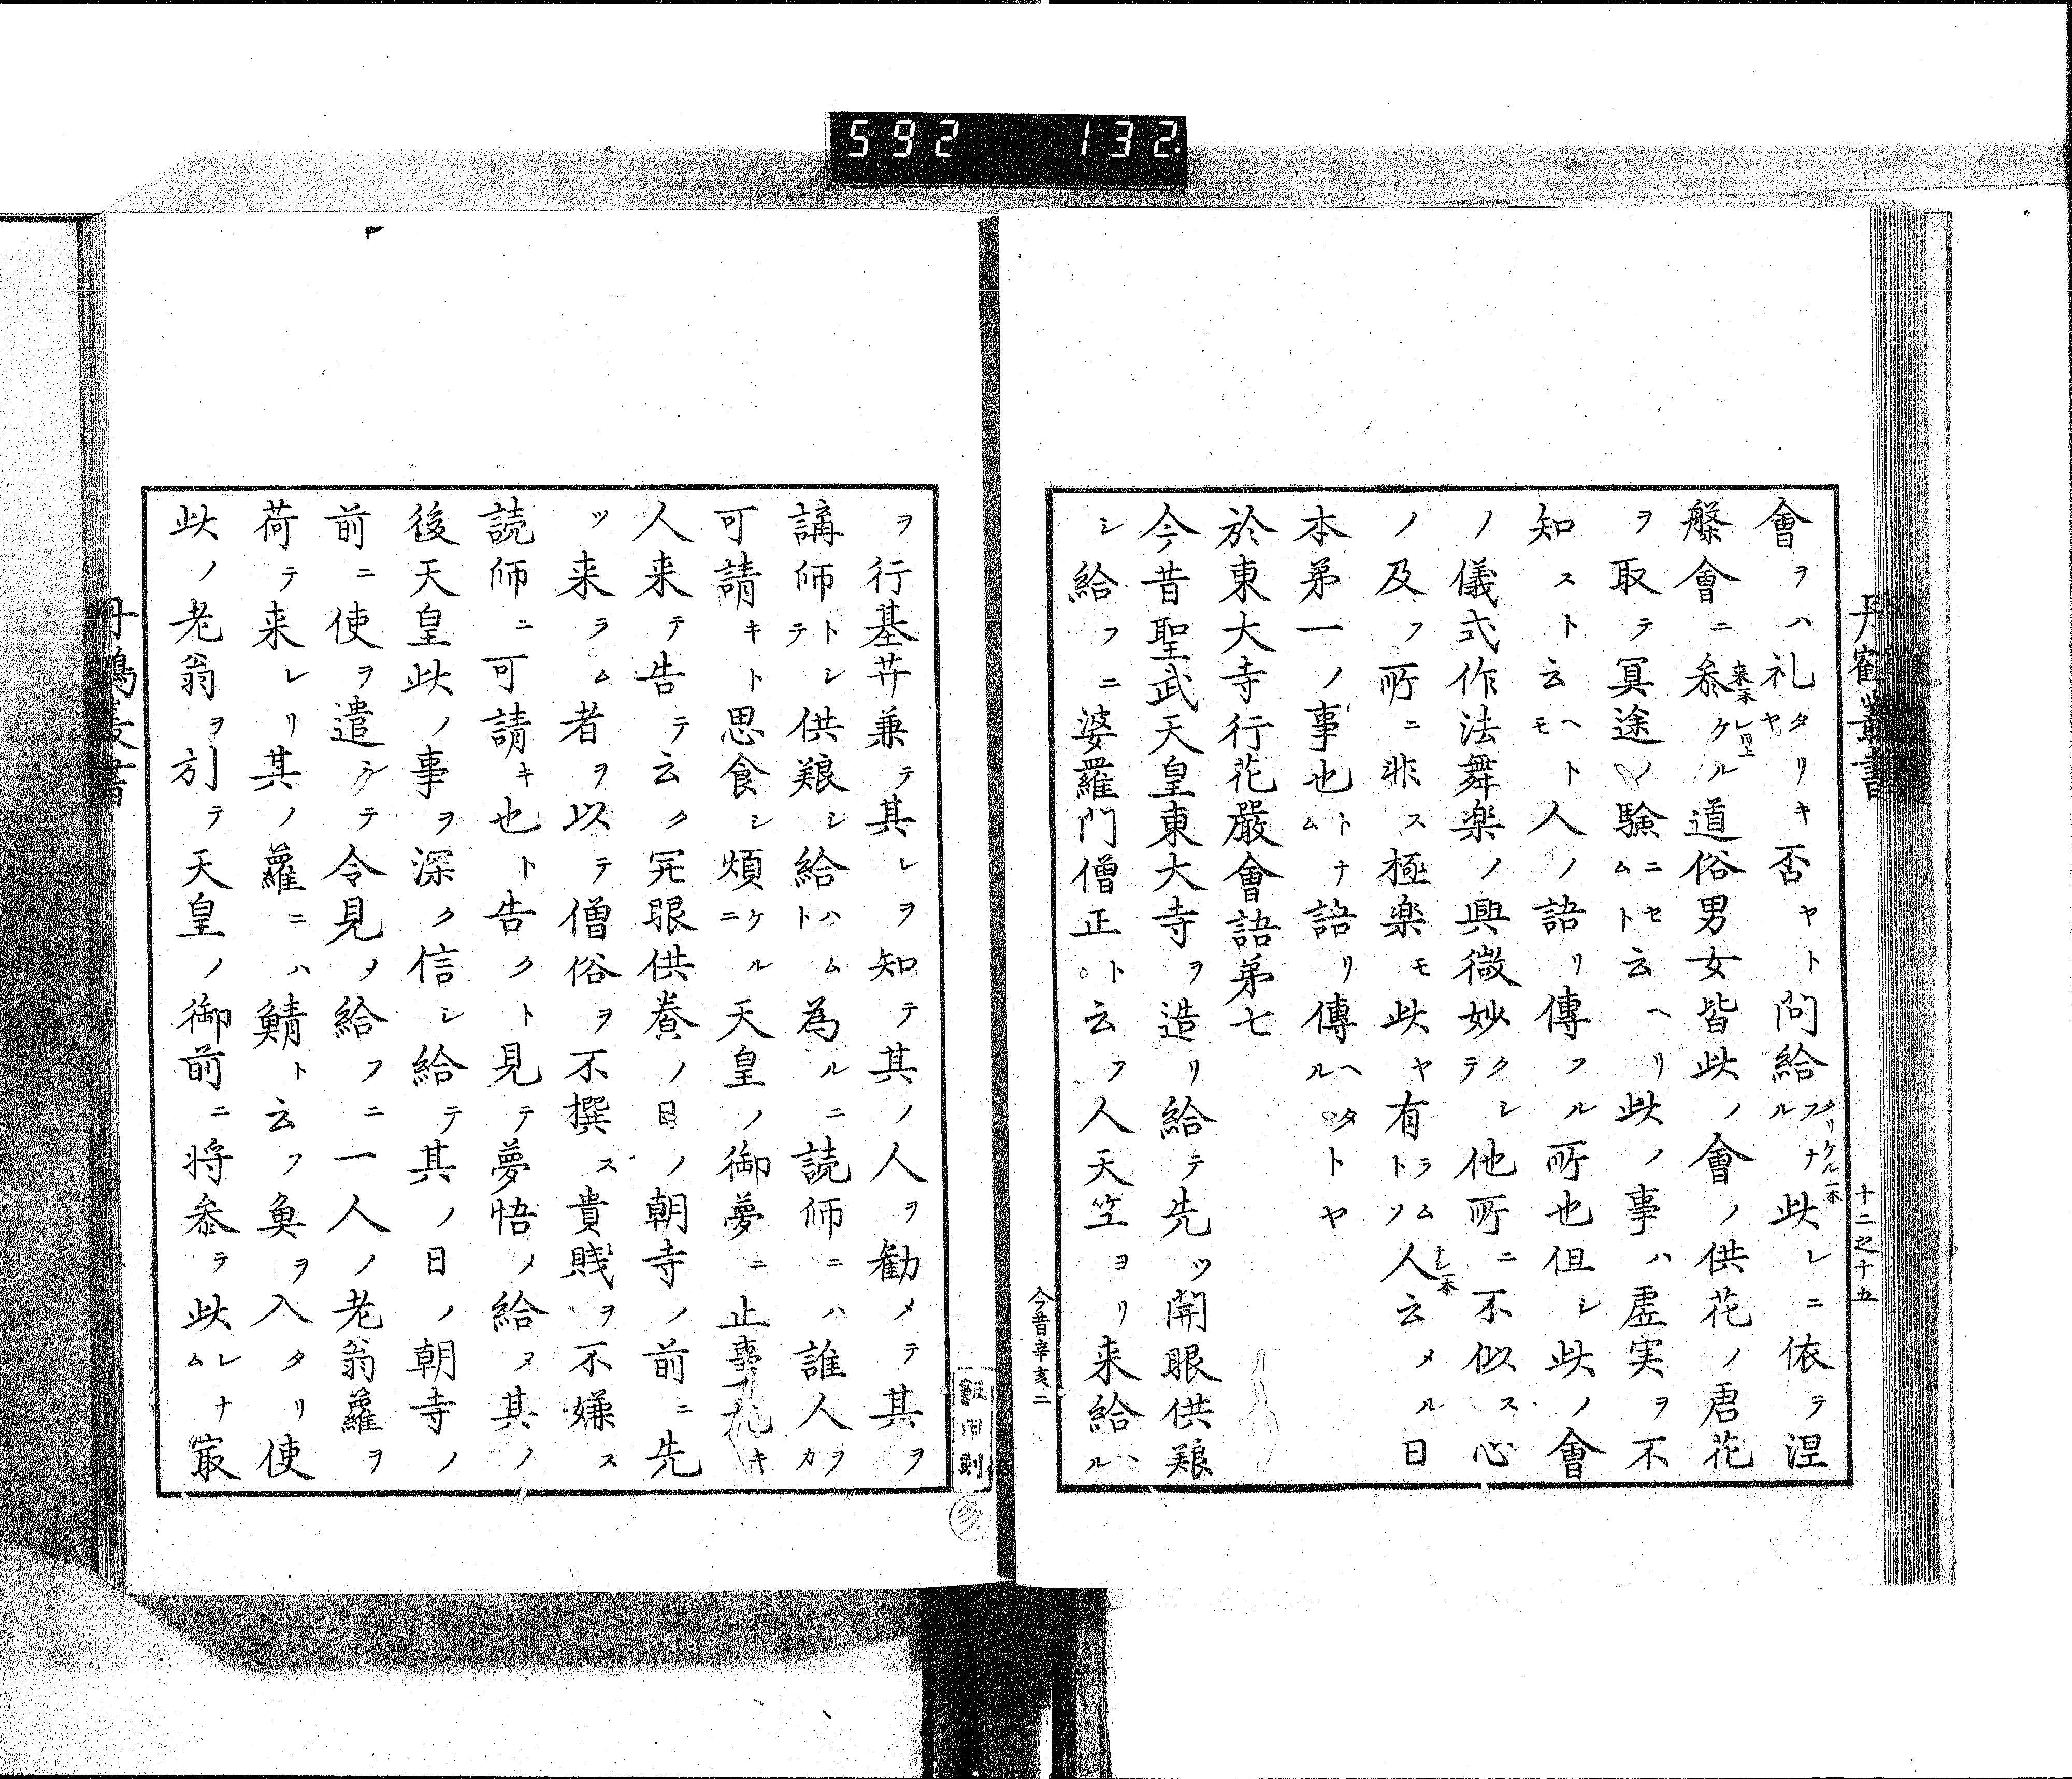 592 132
丹鶴叢書
十二之十五
會ヲハ礼タリキヤ否ヤト問給フナル此レニ依テ涅
タリケル一本
槃會ニ叅レケル道俗男女皆此ノ會ノ供花ノ唐花
来一本 同上
ヲ取テ冥途ノ験ニセムト云ヘリ此ノ事ハ虚実ヲ不
知スト云ヘトモ人ノ語リ傳フル所也但シ此ノ會
ノ儀式作法舞楽ノ興微妙クシテ他所ニ不似ス心
ノ及フ所ニ非ス極楽モ此ヤ有ラムトソ人云メル日
ナレ一本
本第一ノ事也トナム語リ傳ヘタルトヤ
於東大寺行花嚴會語第七
今昔聖武天皇東大寺ヲ造リ給テ先ツ開眼供養
シ給フニ婆羅門僧正ト云フ人天竺ヨリ来給ハル
今昔辛亥二
ヲ行基菩薩兼テ其レヲ知テ其ノ人ヲ勧メテ其ヲ
講師トシテ供養シ給ハムト為ルニ読師ニハ誰人ヲカ
可請キト思食シ煩ケルニ天皇ノ御夢ニ止事无キ
人来テ告テ云ク開眼供養ノ日ノ朝寺ノ前ニ先
ツ来ラム者ヲ以テ僧俗ヲ不撰ス貴賤ヲ不嫌ス
読師ニ可請キ也ト告クト見テ夢悟メ給ヌ其ノ
後天皇此ノ事ヲ深ク信シ給テ其ノ日ノ朝寺ノ
前ニ使ヲ遣シテ令見メ給フニ一人ノ老翁籮ヲ
荷テ来レリ其ノ籮ニハ鯖ト云フ魚ヲ入タリ使
此ノ老翁ヲ引テ天皇ノ御前ニ将叅テ此レナム最
丹鶴叢書